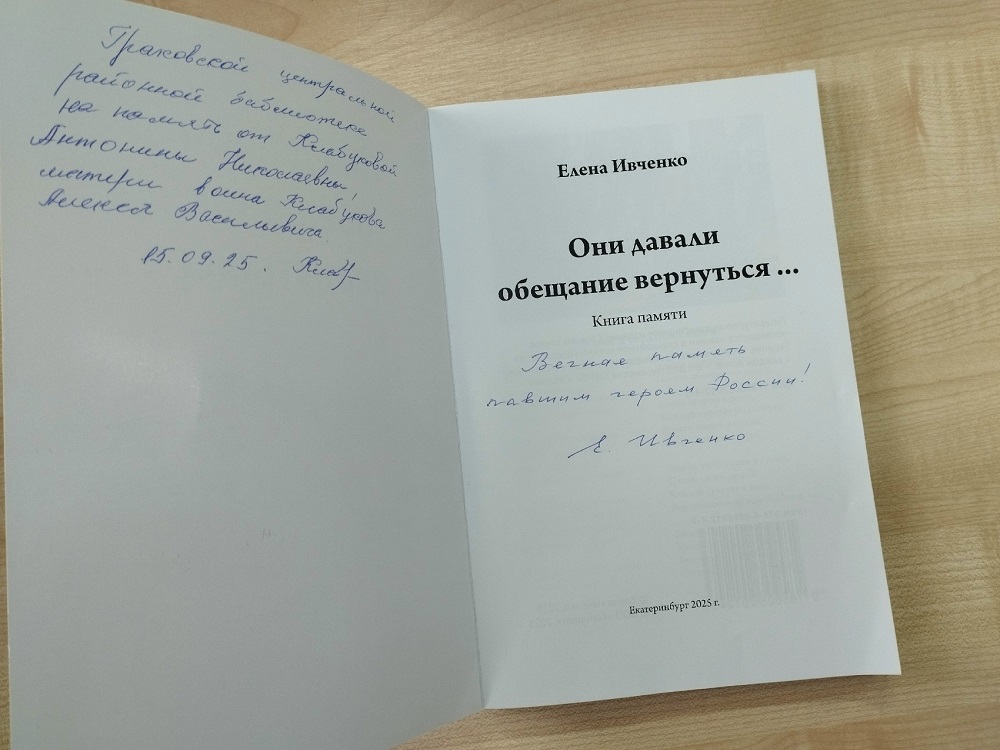 Граховской центральной
районной библиотеке
на память от Клабуковой
Антонины Николаевны,
матери воина Клабукова
Алексея Васильевича.
15.09.25. Клаб
Елена Ивченко
Они давали
обещание вернуться ...
Книга памяти
Вечная память
павшим героям России!
Е. Ивченко
Екатеринбург 2025 г.